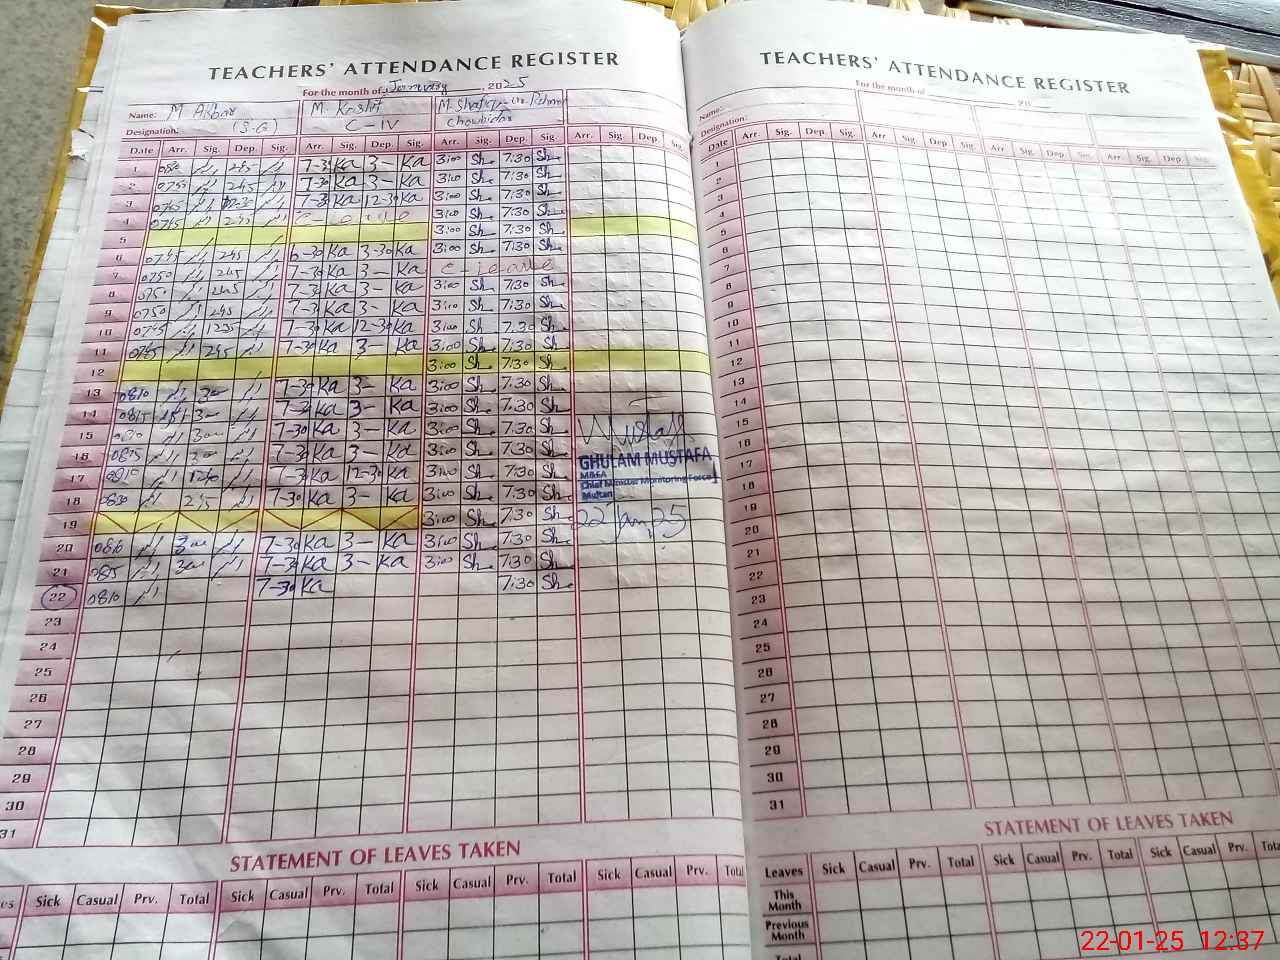 TEACHERS' ATTENDANCE REGISTER
For the month of January, 2025
Name: M Akbar M. Kashif M. Shafiq-ur-Rehman
Designation: (S.G) C-IV Chowkidar
Date Arr. Sig. Dep. Sig. Arr. Sig. Dep. Sig. Arr. Sig. Dep. Sig. Arr. Sig. Dep. Sig.
1 245 7-30 Ka 3- Ka 3:00 Sh 7:30 Sh
2 0755 245 7-30 Ka 3- Ka 3:00 Sh 7:30 Sh
3 0745 7-30 Ka 12-30 Ka 3:00 Sh 7:30 Sh
4 0745 245 C-leave 3:00 Sh 7:30 Sh
5 3:00 Sh 7:30 Sh
6 0745 245 6-30 Ka 3-30 Ka 3:00 Sh 7:30 Sh
7 0750 245 7-30 Ka 3- Ka C-leave
8 0750 245 7-30 Ka 3- Ka 3:00 Sh 7:30 Sh
9 0750 245 7-30 Ka 3- Ka 3:00 Sh 7:30 Sh
10 0745 7-30 Ka 12-30 Ka 3:00 Sh 7:30 Sh
11 0745 245 7-30 Ka 3- Ka 3:00 Sh 7:30 Sh
12 3:00 Sh 7:30 Sh
13 0810 300 7-30 Ka 3- Ka 3:00 Sh 7:30 Sh
14 0815 300 7-30 Ka 3- Ka 3:00 Sh 7:30 Sh
15 300 7-30 Ka 3- Ka 3:00 Sh 7:30 Sh
16 0815 300 7-30 Ka 3- Ka 3:00 Sh 7:30 Sh
17 0810 7-30 Ka 12-30 Ka 3:00 Sh 7:30 Sh
18 0830 245 7-30 Ka 3- Ka 3:00 Sh 7:30 Sh
19 3:00 Sh 7:30 Sh
20 0810 300 7-30 Ka 3- Ka 3:00 Sh 7:30 Sh
21 0815 300 7-30 Ka 3- Ka 3:00 Sh 7:30 Sh
22 0810 7-30 Ka 7:30 Sh
23
24
25
26
27
28
29
30
31
GHULAM MUSTAFA
MB&A
Chief Minister Monitoring Force
Multan
22 Jan, 25
STATEMENT OF LEAVES TAKEN
Sick Casual Prv. Total Sick Casual Prv. Total Sick Casual Prv. Total Sick Casual Prv. Total
TEACHERS' ATTENDANCE REGISTER
For the month of 20
Name:
Designation:
Date Arr. Sig. Dep. Sig. Arr. Sig. Dep. Sig. Arr. Sig. Dep. Sig.
1
2
3
4
5
6
7
8
9
10
11
12
13
14
15
16
17
18
19
20
21
22
23
24
25
26
27
28
29
30
31
STATEMENT OF LEAVES TAKEN
Leaves Sick Casual Prv. Total Sick Casual Prv. Total Sick Casual Prv.
This Month
Previous Month
22-01-25 12:37